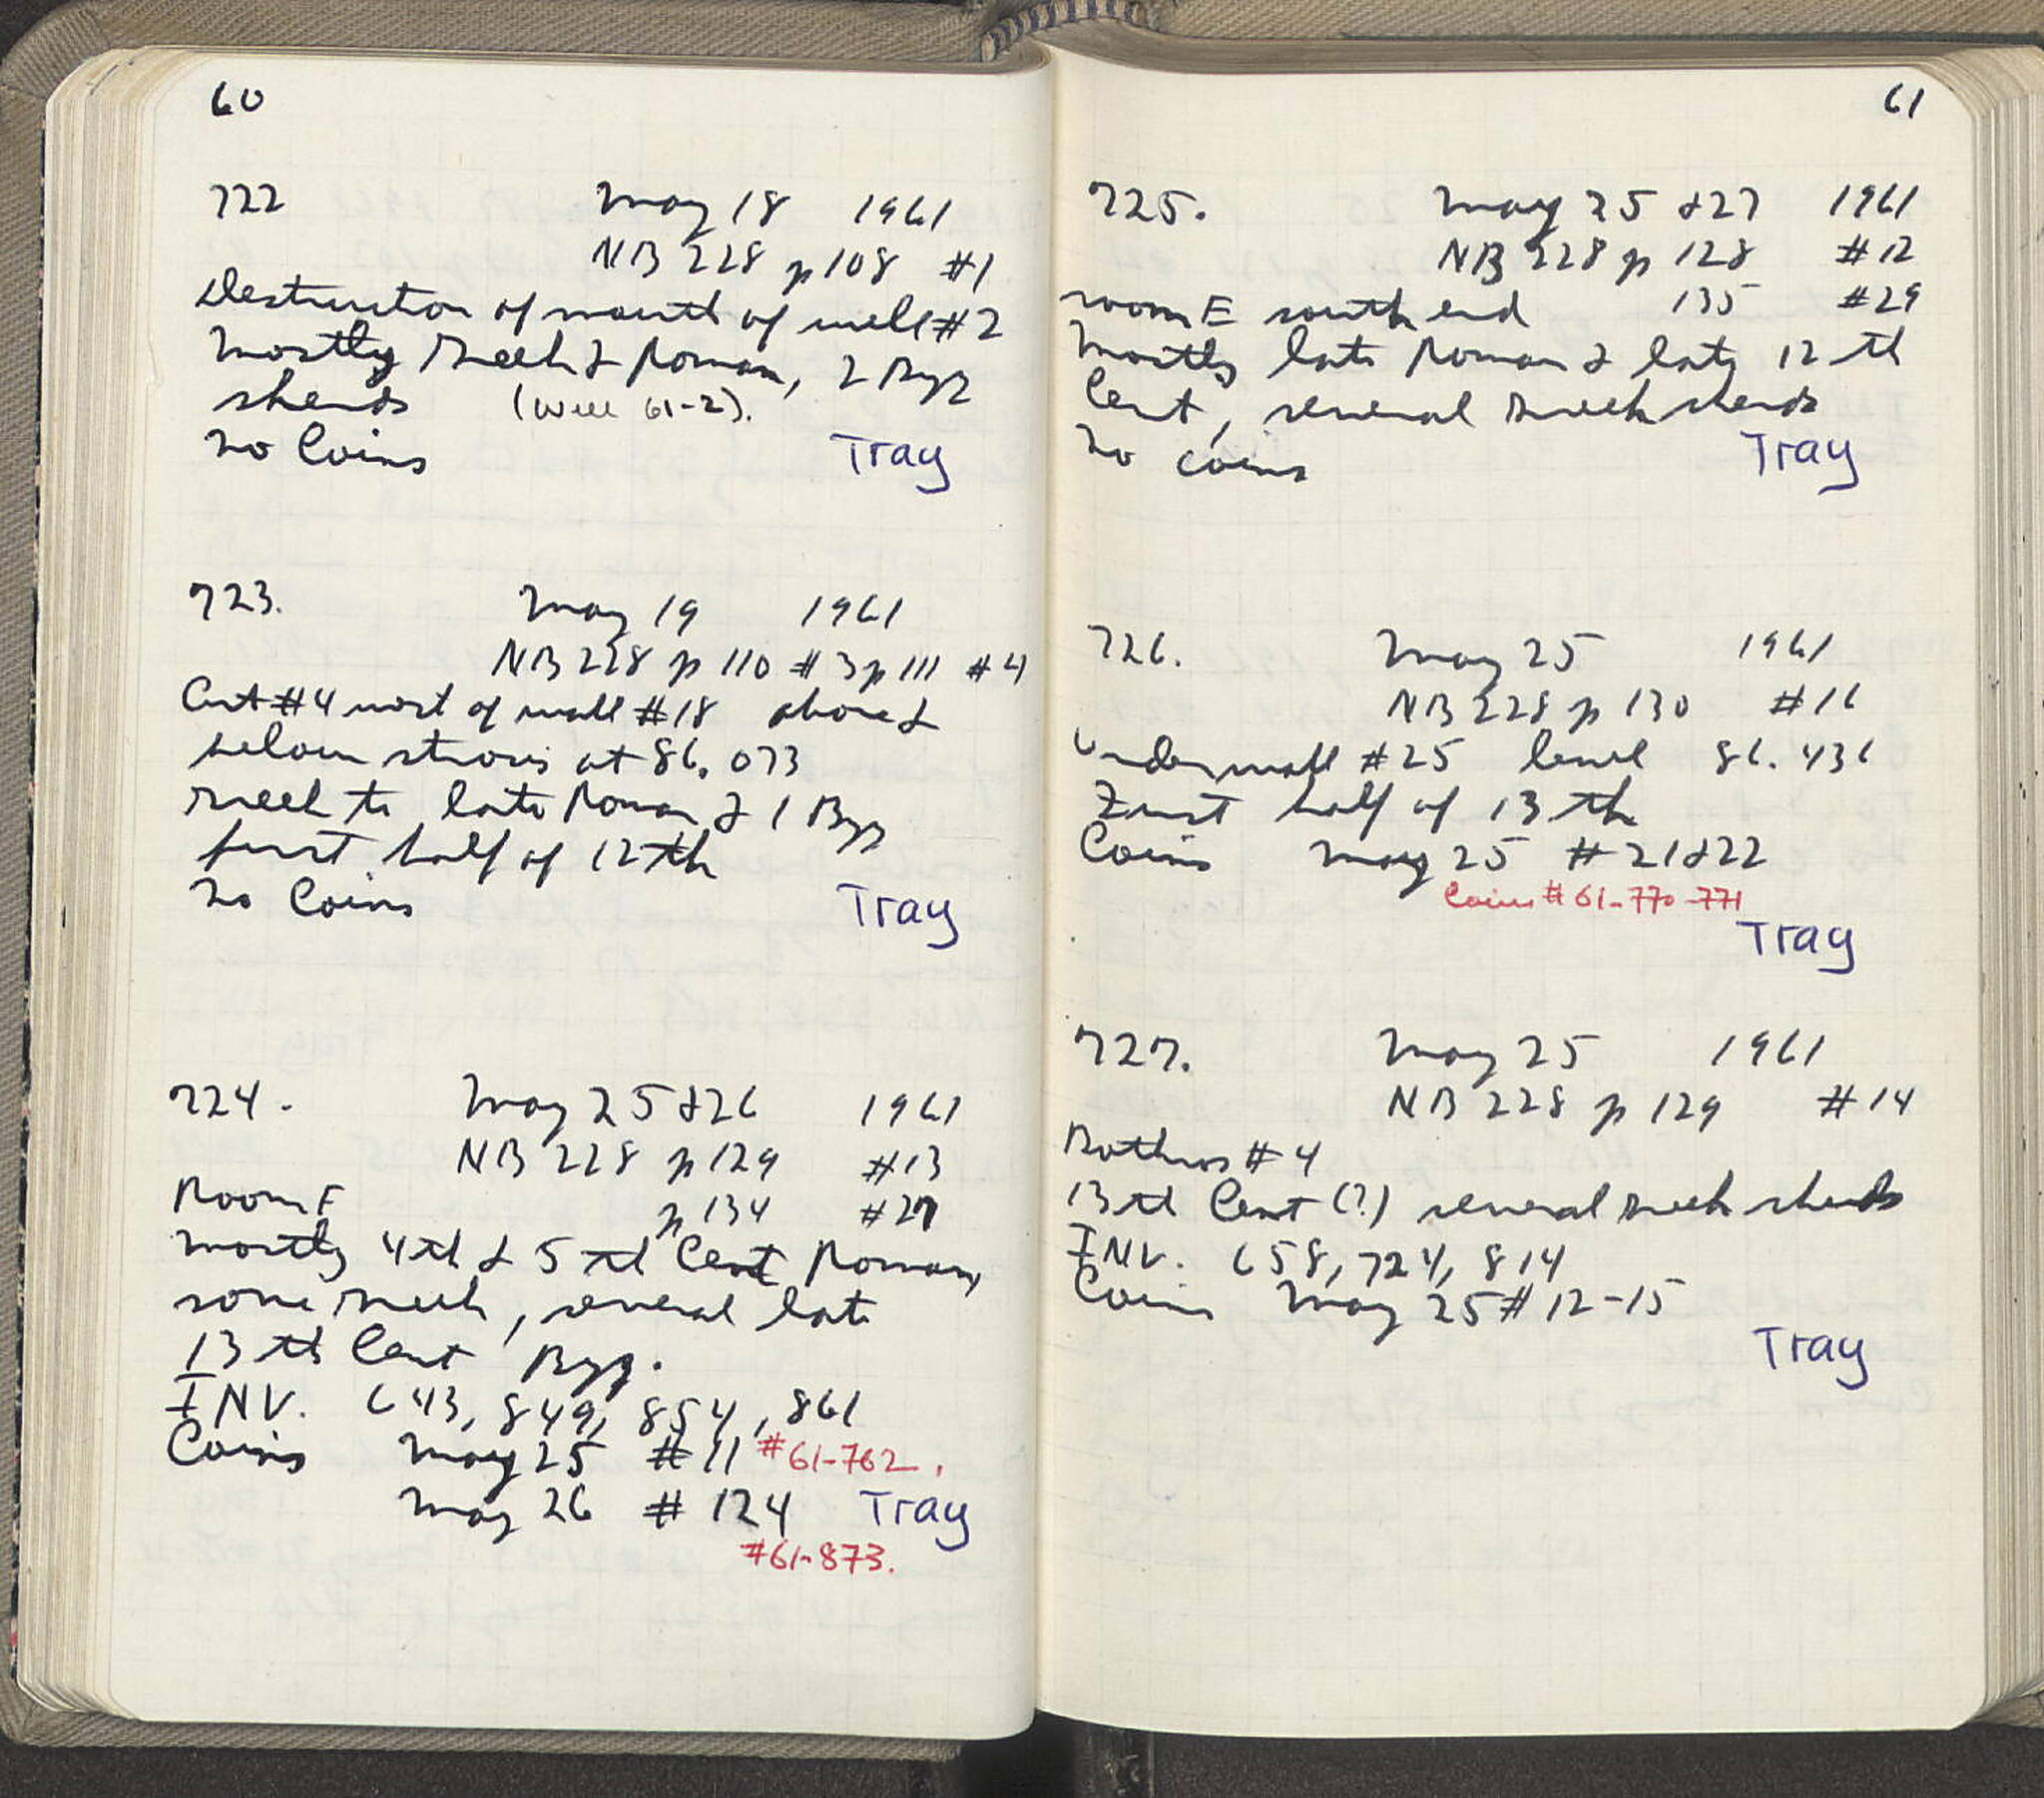 60
722 May 18 1961
NB 228 p 108 #1
Destruction of mouth of well #2
Mostly Greek & Roman, 2 Byz
sherds (Well 61-2).
No Coins Tray
723. May 19 1961
NB 228 p 110 #3 p 111 #4
Cut #4 west of wall #18 above &
below stroses at 86.073
Greek to late Roman & 1 Byz
first half of 12th
No Coins Tray
724. May 25 & 26 1961
NB 228 p 129 #13
Room F p 134 #27
mostly 4th & 5th Cent Roman,
some Greek, several late
13th Cent Byz.
INV. 643, 849, 854, 861
Coins May 25 #11 #61-762.
May 26 #124 Tray
#61-873.
61
725. May 25 & 27 1961
NB 228 p 128 #12
room E south end 135 #29
Mostly late Roman & late 12th
Cent, several Greek sherds
No coins Tray
726. May 25 1961
NB 228 p 130 #16
Under wall #25 level 86.436
First half of 13th
Coins May 25 #21&22
Coins #61-770-771
Tray
727. May 25 1961
NB 228 p 129 #14
Bothros #4
13th Cent (?) several Greek sherds
INV. 658, 724, 814
Coins May 25 #12-15
Tray